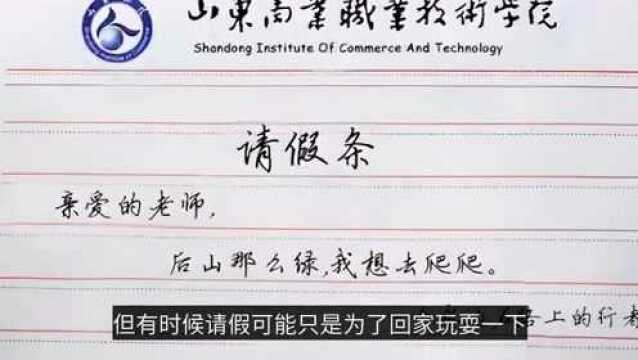 山东商业职业技术学院
Shandong Institute Of Commerce And Technology
请假条
亲爱的老师,
后山那么绿,我想去爬爬。
上的行者
但有时候请假可能只是为了回家玩耍一下